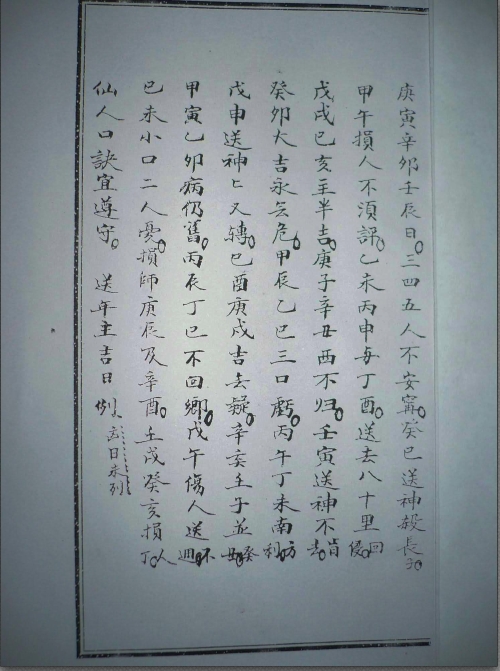 庚寅辛卯壬辰日。三四五人不安寧。癸巳送神殺長子。
甲午損人不須評。乙未丙申每丁酉。送去八十里回
戊戌巳亥主半吉。庚子辛丑西不归。壬寅送神不肯去。
癸卯大吉永無危。甲辰乙巳三口虧。丙午丁未南方利。
戊申送神神又轉。巳酉庚戌吉去疑。辛亥壬子並癸丑。
甲寅乙卯病仍舊。丙辰丁巳不回鄉。戊午傷人送不迴。
巳未小口二人憂。損師庚辰及辛酉。壬戌癸亥損人丁。
仙人口訣宜遵守。 送年主吉日例。